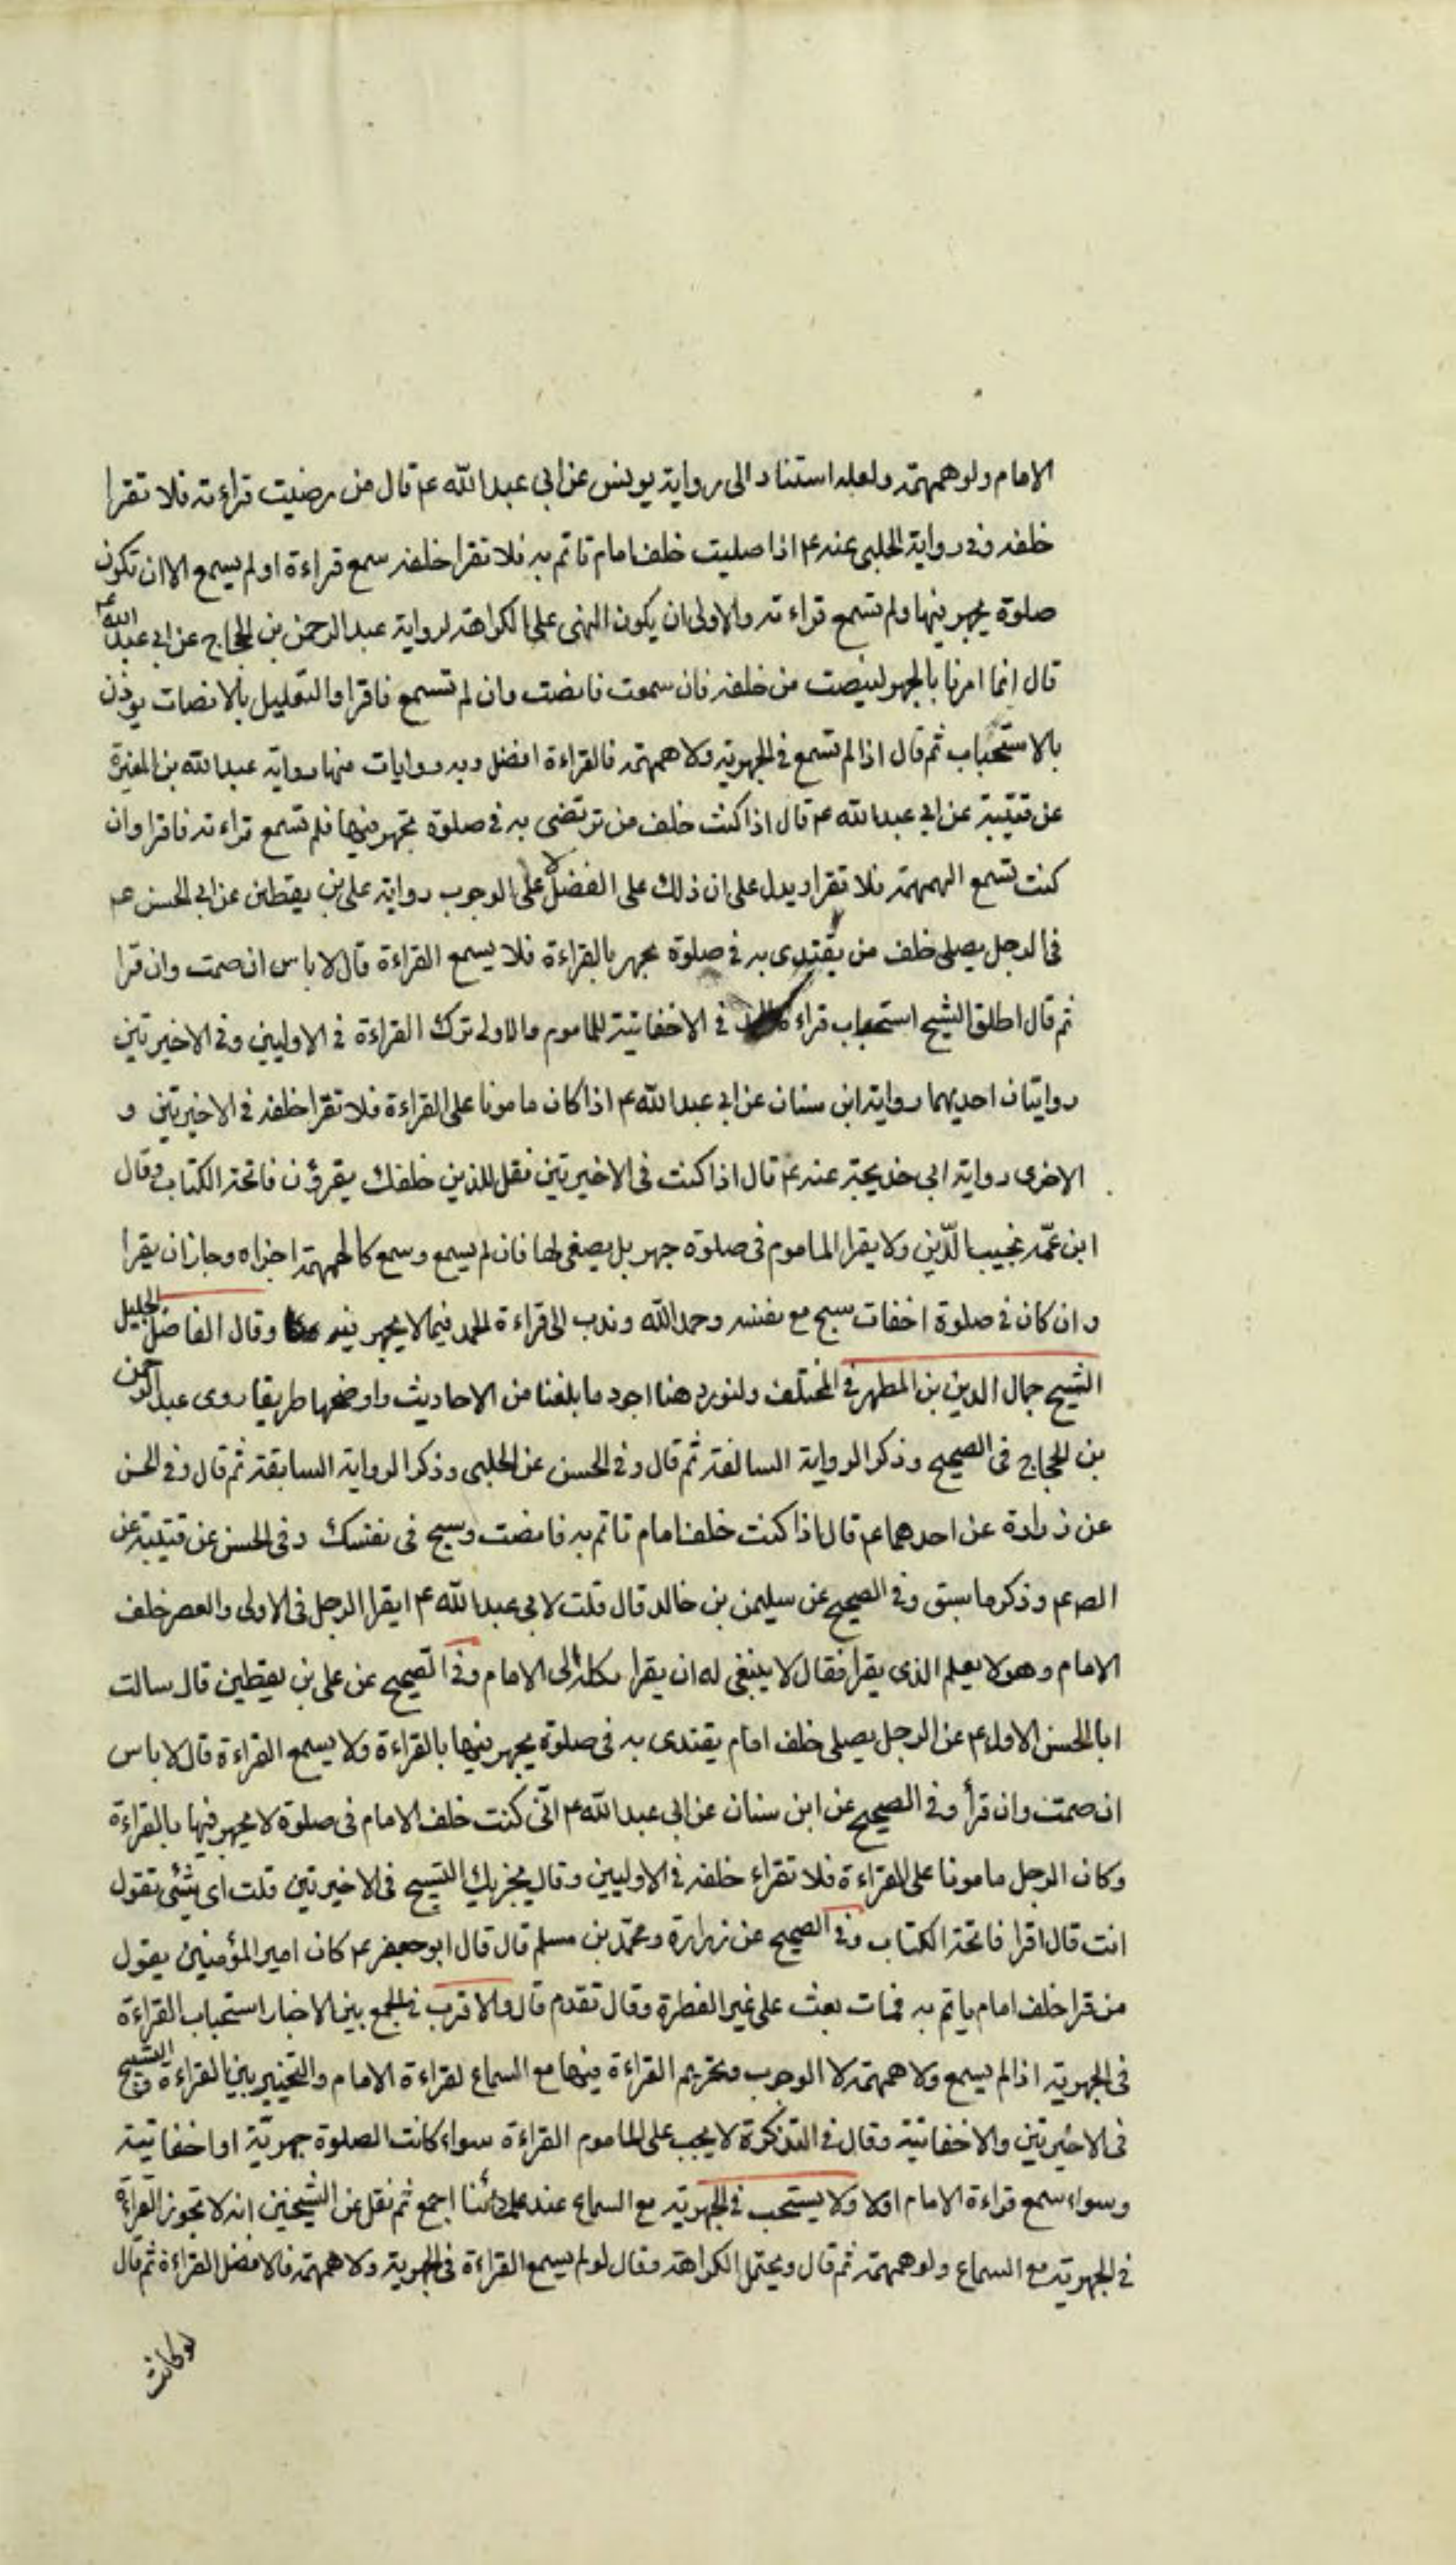 الامام ولو همهمة ولعله استناد الى رواية يونس عن ابي عبد الله ع م قال من رضيت قراءته فلا تقرا
خلفه وفي رواية الحلبي عنه ع م اذا صليت خلف امام تاتم به فلا تقرا خلفه سمع قراءة او لم يسمع الا ان تكون
صلوة يجهر فيها ولم تسمع قراءته والاولى ان يكون النهي على الكراهة لرواية عبد الرحمن بن الحجاج عن ابي عبد الله ع م
قال انما امرنا بالجهر لينصت من خلفه فان سمعت فانصت وان لم تسمع فاقرا والتعليل بالانصات يوذن
بالاستحباب ثم قال اذا لم تسمع في الجهرية ولا همهمة فالقراءة افضل وبه روايات منها رواية عبد الله بن المغيرة
عن قتيبة عن ابي عبد الله ع م قال اذا كنت خلف من ترتضي به في صلوة تجهر فيها فلم تسمع قراءته فاقرا وان
كنت تسمع الهمهمة فلا تقرا ويدل على ان ذلك على الفضل لا على الوجوب رواية علي بن يقطين عن ابي الحسن ع م
في الرجل يصلي خلف من يقتدى به في صلوة يجهر بالقراءة فلا يسمع القراءة قال لا باس ان صمت وان قرا
ثم قال اطلق الشيخ استحباب قراءة في الاخفاتية للماموم والاولى ترك القراءة في الاوليين وفي الاخيرتين
روايتان احديهما رواية ابن سنان عن ابي عبد الله ع م اذا كان مامونا على القراءة فلا تقرا خلفه في الاخيرتين و
الاخرى رواية ابي خديجة عنه ع م قال اذا كنت في الاخيرتين فقل للذين خلفك يقرؤن فاتحة الكتاب وقال
ابن عمه نجيب الدين ولا يقرا الماموم في صلوة جهر بل يصغي لها فان لم يسمع وسمع كالهمهمة اجزاه وجاز ان يقرا
وان كان في صلوة اخفات سبح مع نفسه وحمد الله وندب الى قراءة الحمد فيما لا يجهر فيه وقال الفاضل الجليل
الشيخ جمال الدين بن المطهر في المختلف ولنورد هنا اجود ما بلغنا من الاحاديث واوضحها طريقا روى عبد الرحمن
بن الحجاج في الصحيح وذكر الرواية السالفة ثم قال وفي الحسن عن الحلبي وذكر الرواية السابقة ثم قال وفي الحسن
عن زرارة عن احدهما ع م قال اذا كنت خلف امام تاتم به فانصت وسبح في نفسك وفي الحسن عن قتيبة عن
الص ع م وذكر ما سبق وفي الصحيح عن سليمن بن خالد قال قلت لابي عبد الله ع م ايقرا الرجل في الاولى والعصر خلف
الامام وهو لا يعلم الذي يقرا فقال لا ينبغي له ان يقرا يكله الى الامام وفي الصحيح عن علي بن يقطين قال سالت
ابا الحسن الاول ع م عن الرجل يصلي خلف امام يقتدى به في صلوة يجهر فيها بالقراءة ولا يسمع القراءة قال لا باس
ان صمت وان قرأ وفي الصحيح عن ابن سنان عن ابي عبد الله ع م انى كنت خلف الامام في صلوة لا يجهر فيها بالقراءة
وكان الرجل مامونا على القراءة فلا تقراء خلفه في الاوليين وقال يجزيك التسبيح في الاخيرتين قلت اى شئ تقول
انت قال اقرا فاتحة الكتاب وفي الصحيح عن زرارة ومحمد بن مسلم قال قال ابو جعفر ع م كان امير المؤمنين يقول
من قرا خلف امام ياتم به فمات بعث على غير الفطرة وقال تقدم قال والاقرب في الجمع بين الاخبار استحباب القراءة
في الجهرية اذا لم يسمع ولا همهمة لا الوجوب وتحريم القراءة فيها مع السماع لقراءة الامام والتخيير بين القراءة والتسبيح
في الاخيرتين والاخفاتية وقال في التذكرة لا يجب على الماموم القراءة سواء كانت الصلوة جهرية او اخفاتية
وسواء سمع قراءة الامام اولا ولا يستحب في الجهرية مع السماع عند علمائنا اجمع ثم نقل عن الشيخين انه لا تجوز القراءة
في الجهرية مع السماع ولو همهمة ثم قال ويحتمل الكراهة وقال لو لم يسمع القراءة في الجهرية ولا همهمة فالافضل القراءة ثم قال
لو كانت